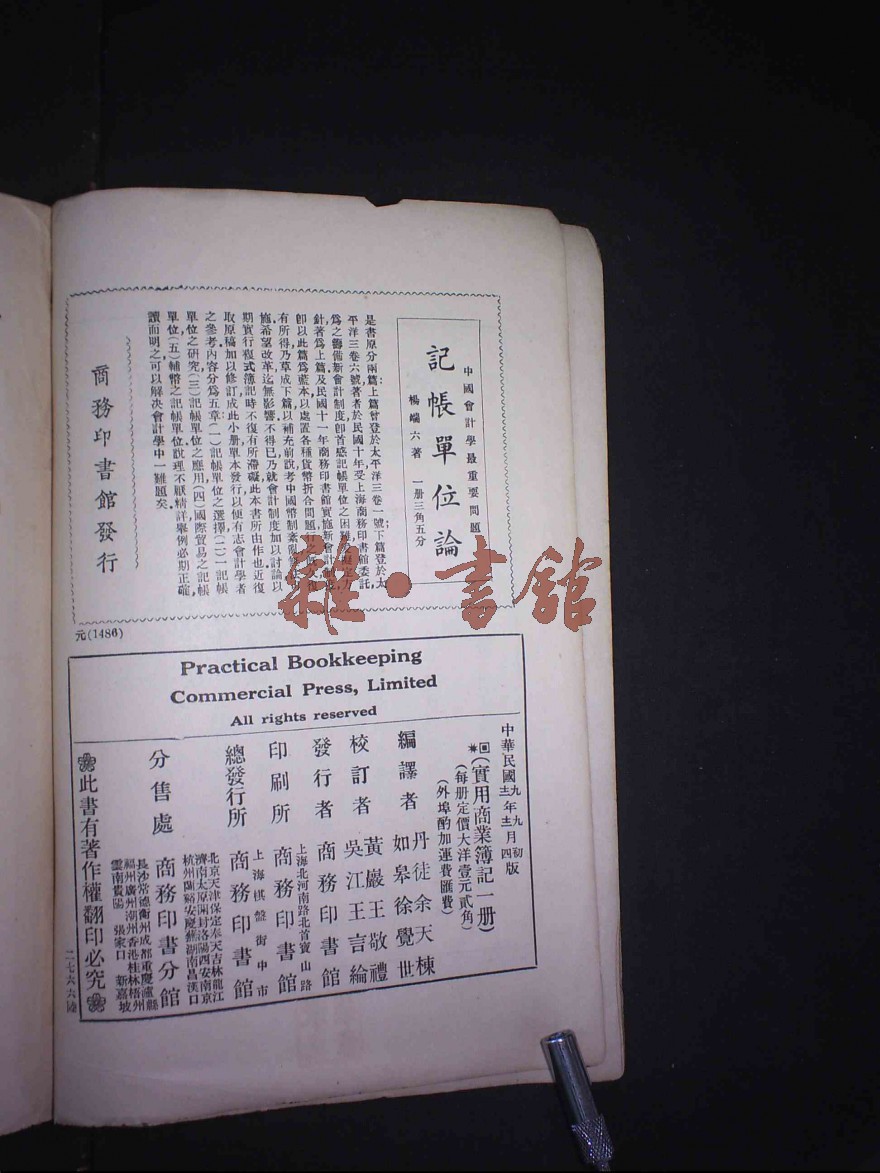 中國會計學最重要問題
記帳單位論
楊端六著 一册三角五分
是書原分兩篇上篇曾登於太平洋三卷一號下篇登於太
平洋三卷六號著者於民國十年受上海商務印書館委託,
爲之籌備新會計制度,卽首感記帳單位之困難
針著爲上篇及民國十一年商務印書館實施新會計
卽以此篇爲藍本以處置各種貨幣折合問題
有所得乃草成下篇以補充前說考中國幣制紊亂
施希望改革迄無影響不得已乃就會計制度加以討論以
期實行程式簿記時不復有所滯礙此本書所由作也近復
取原稿加以修訂成此小册單本發行以便有志會計學者
之參考內容分爲五章(一)記帳單位之選擇(二)記帳
單位之研究(三)記帳單位之應用(四)國際貿易之記帳
單位(五)輔幣之記帳單位說理不厭精詳舉例必期正確,
讀而明之可以解决會計學中一難題矣.
商務印書館發行
元(1486)
Practical Bookkeeping
Commercial Press, Limited
All rights reserved
中華民國九年九月初版
十二年十二月四版
(實用商業簿記一册)
(每册定價大洋壹元貳角)
(外埠酌加運費匯費)
編譯者 丹徒余天棟
如皋徐覺世
校訂者 黃巖王敬禮
吳江王言綸
發行者 商務印書館
印刷所 上海北河南路北首寶山路
商務印書館
總發行所 上海棋盤街中市
商務印書館
分售處 北京天津保定奉天吉林龍江
濟南太原開封洛陽西安南京
杭州蘭谿安慶蕪湖南昌漢口
商務印書分館
長沙常德衡州成都重慶瀘縣
福州廣州潮州香港桂林梧州
雲南貴陽 張家口 新嘉坡
此書有著作權翻印必究
二七六六陸
雜·書館